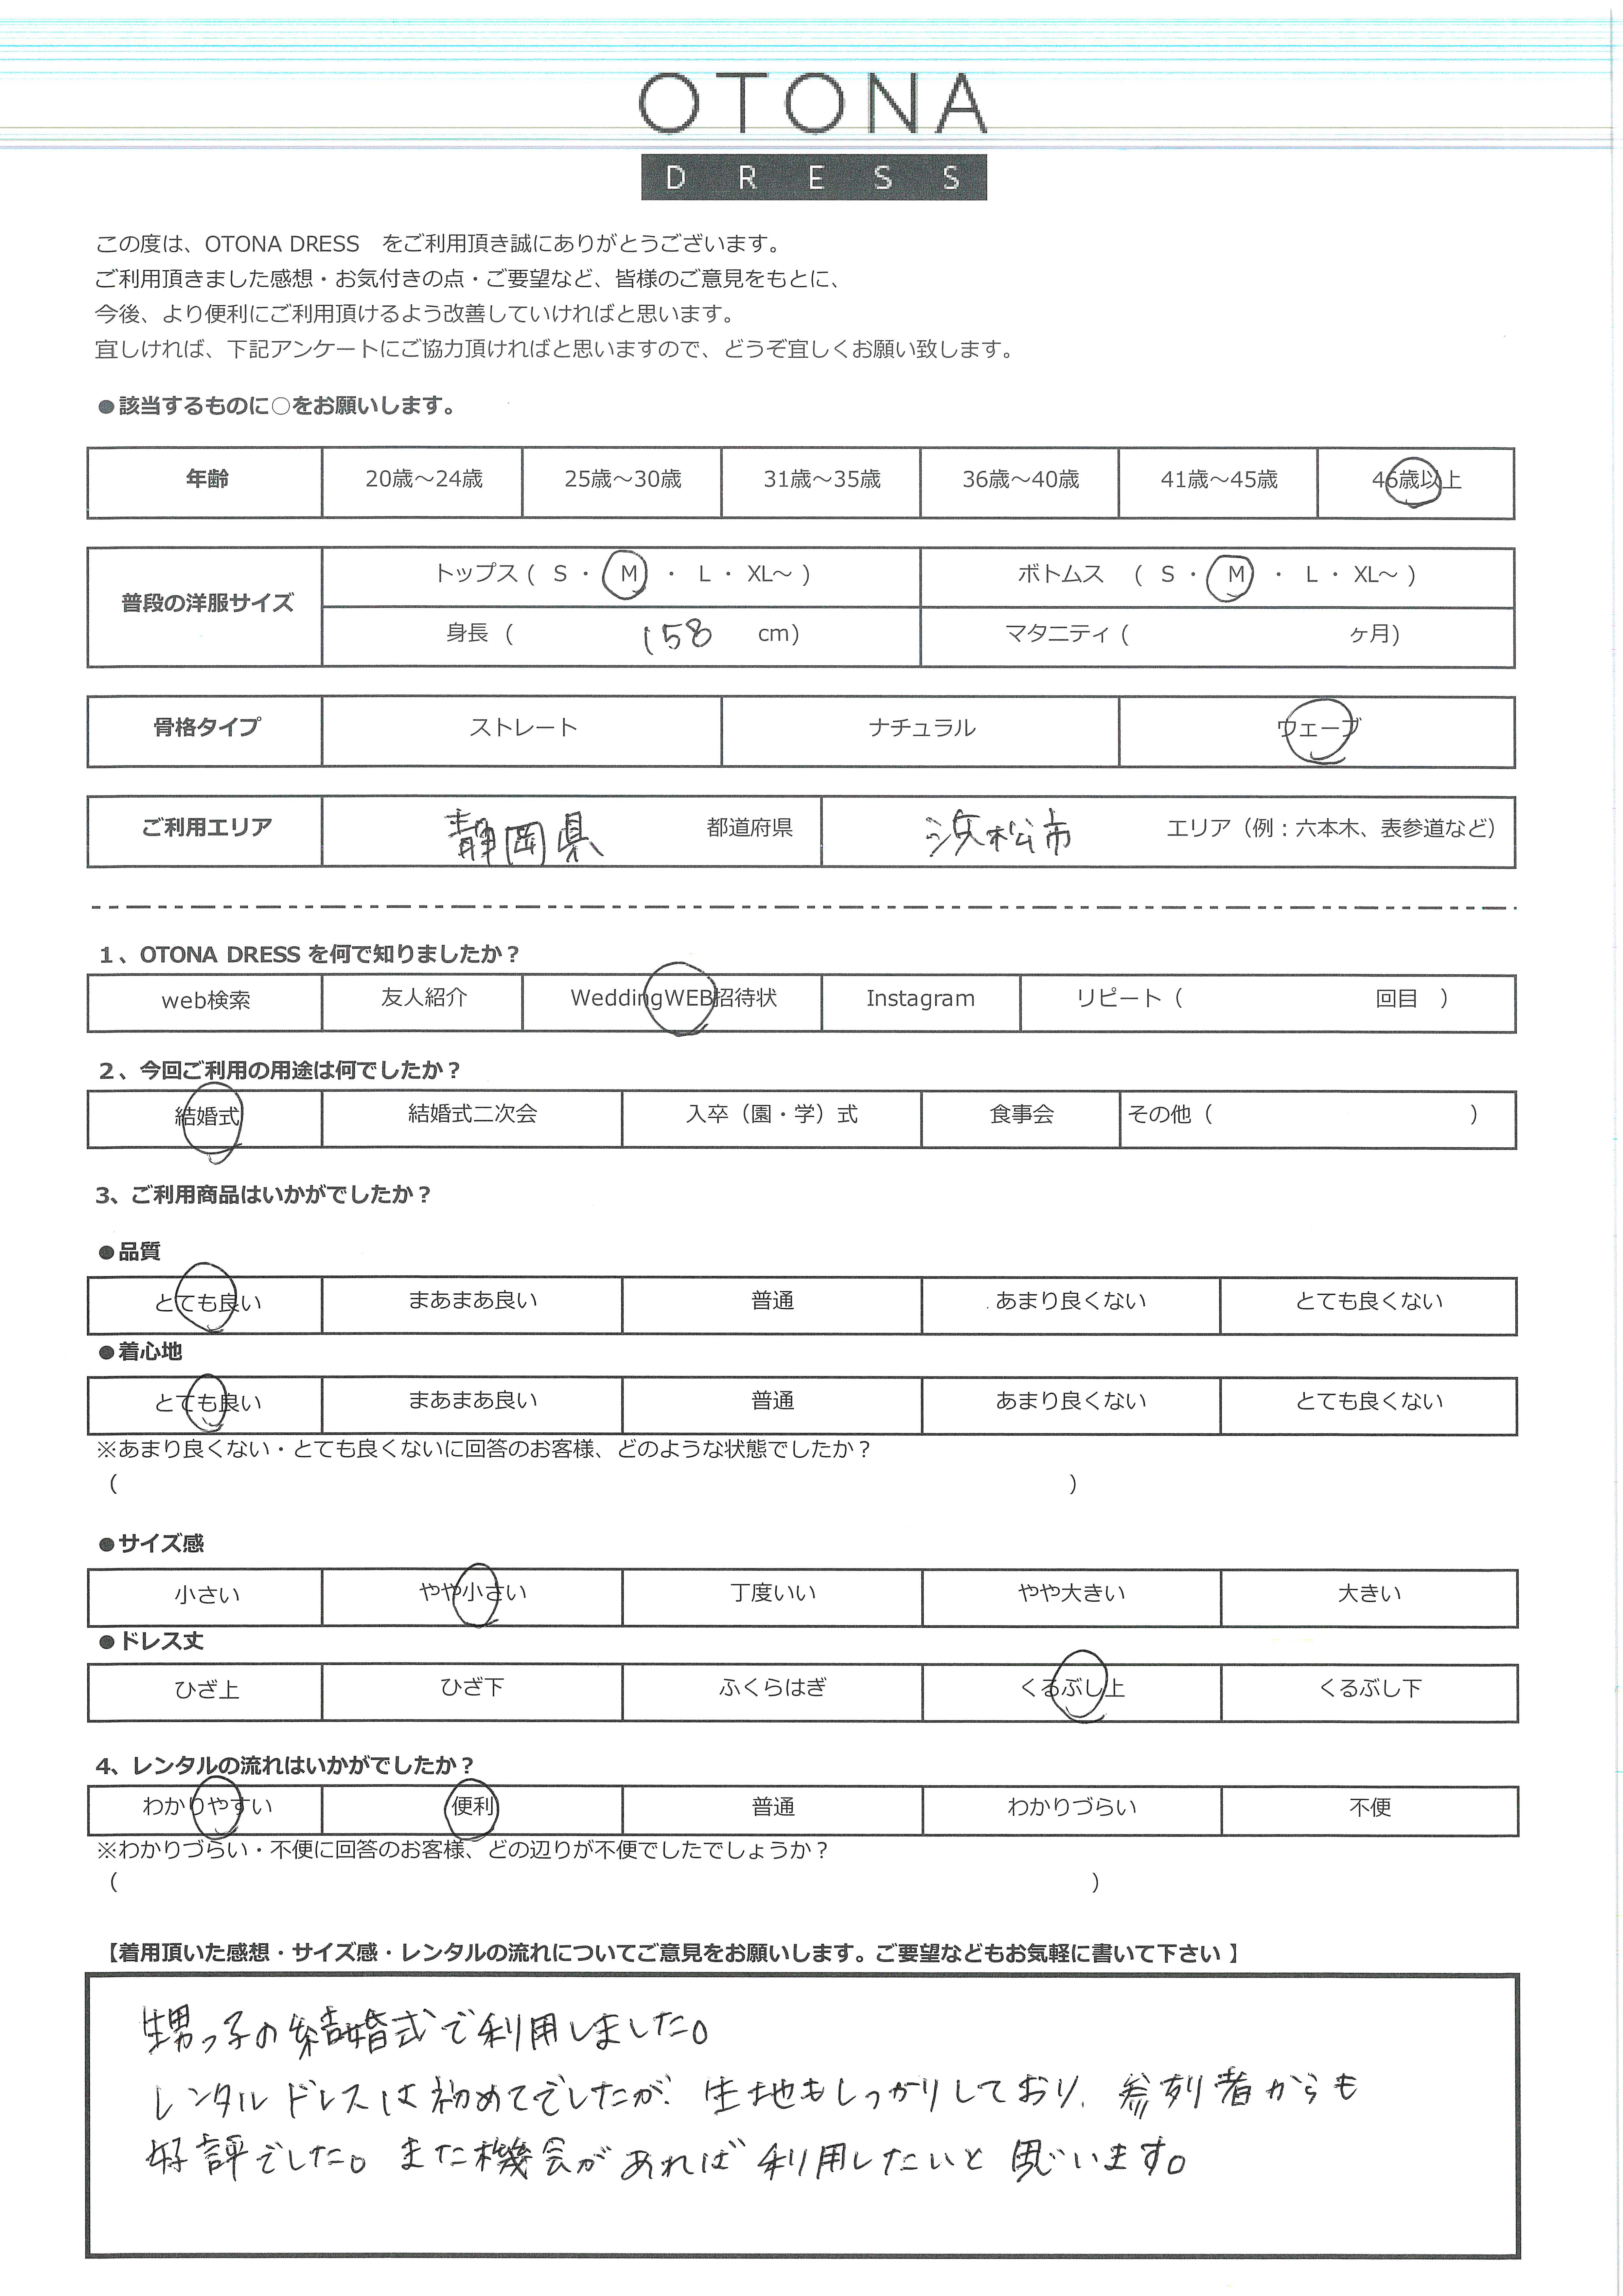 OTONA
DRESS
この度は、OTONA DRESS　をご利用頂き誠にありがとうございます。
ご利用頂きました感想・お気付きの点・ご要望など、皆様のご意見をもとに、
今後、より便利にご利用頂けるよう改善していければと思います。
宜しければ、下記アンケートにご協力頂ければと思いますので、どうぞ宜しくお願い致します。
●該当するものに○をお願いします。
年齢 20歳～24歳 25歳～30歳 31歳～35歳 36歳～40歳 41歳～45歳 46歳以上
普段の洋服サイズ トップス ( S ・ M ・ L ・ XL～ ) ボトムス ( S ・ M ・ L ・ XL～ )
身長 ( 158 cm) マタニティ ( ヶ月)
骨格タイプ ストレート ナチュラル ウェーブ
ご利用エリア 静岡県 都道府県 浜松市 エリア（例：六本木、表参道など）
1、OTONA DRESS を何で知りましたか？
web検索 友人紹介 WeddingWEB招待状 Instagram リピート（ 回目 ）
2、今回ご利用の用途は何でしたか？
結婚式 結婚式二次会 入卒（園・学）式 食事会 その他（ ）
3、ご利用商品はいかがでしたか？
●品質
とても良い まあまあ良い 普通 あまり良くない とても良くない
●着心地
とても良い まあまあ良い 普通 あまり良くない とても良くない
※あまり良くない・とても良くないに回答のお客様、どのような状態でしたか？
（ ）
●サイズ感
小さい やや小さい 丁度いい やや大きい 大きい
●ドレス丈
ひざ上 ひざ下 ふくらはぎ くるぶし上 くるぶし下
4、レンタルの流れはいかがでしたか？
わかりやすい 便利 普通 わかりづらい 不便
※わかりづらい・不便に回答のお客様、どの辺りが不便でしたでしょうか？
（ ）
【着用頂いた感想・サイズ感・レンタルの流れについてご意見をお願いします。ご要望などもお気軽に書いて下さい 】
甥っ子の結婚式で利用しました。
レンタルドレスは初めてでしたが、生地もしっかりしており、参列者からも
好評でした。また機会があれば利用したいと思います。